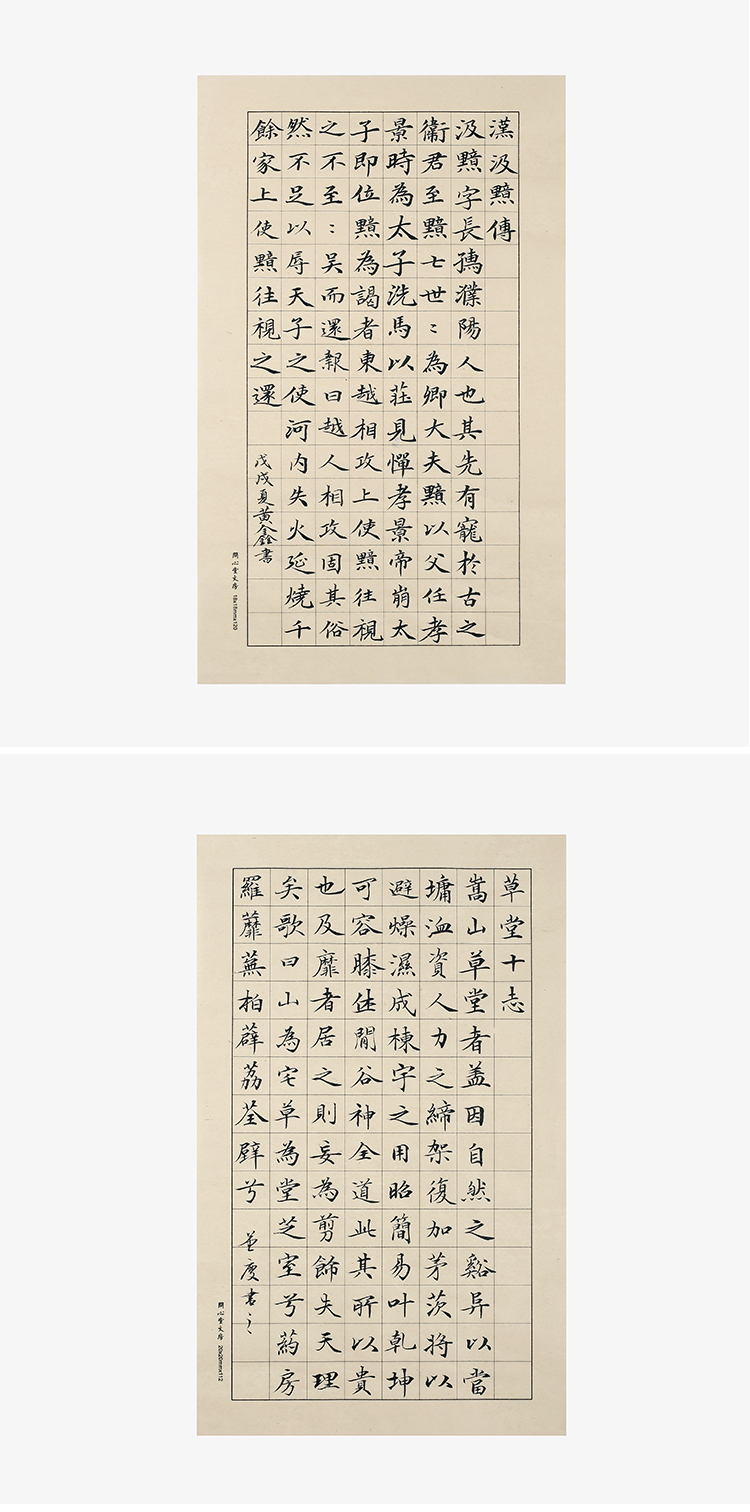 漢汲黯傳
汲黯字長孺濮陽人也其先有寵於古之
衛君至黯七世〻為卿大夫黯以父任孝
景時為太子洗馬以莊見憚孝景帝崩太
子即位黯為謁者東越相攻上使黯往視
之不至〻吴而還報曰越人相攻固其俗
然不足以辱天子之使河内失火延燒千
餘家上使黯往視之還
戊戌夏黄金銓書
問心堂文房 18x18mmx120
草堂十志
嵩山草堂者盖因自然之谿异以當
墉洫資人力之締架復加茅茨將以
避燥濕成棟宇之用昭簡易叶乾坤
可容膝休閒谷神全道此其所以貴
也及靡者居之則妄為剪飾失天理
矣歌曰山為宅草為堂芝室兮葯房
羅蘼蕪柏薜荔荃壁兮
問心堂文房 20x20mmx112